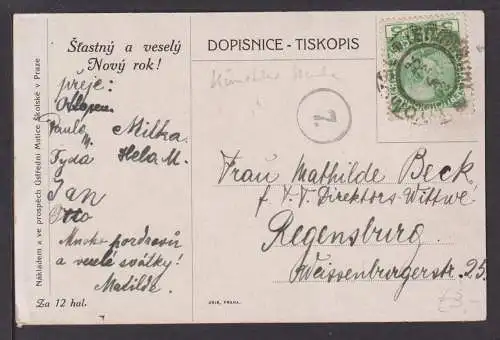 Šťastný a veselý
Nový rok!
přeje:
Paula Milka
M.
Fyda Hela M.
Jan
Otto
Mnoho pozdravů
a veselé svátky!
Matilde.
Za 12 hal.
Nákladem a ve prospěch Ústřední Matice Školské v Praze
DOPISNICE - TISKOPIS
7.
Frau Mathilde Beck
f. V. V. Direktors-Wittwe
Regensburg.
Weissenburgerstr. 25.
UNIE, PRAHA.